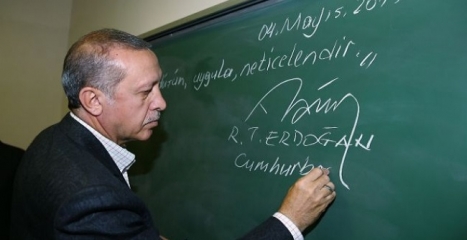 04. Mayıs. 20
uygula, neticelendir.,,
R.T. ERDOĞAN
Cumhurba